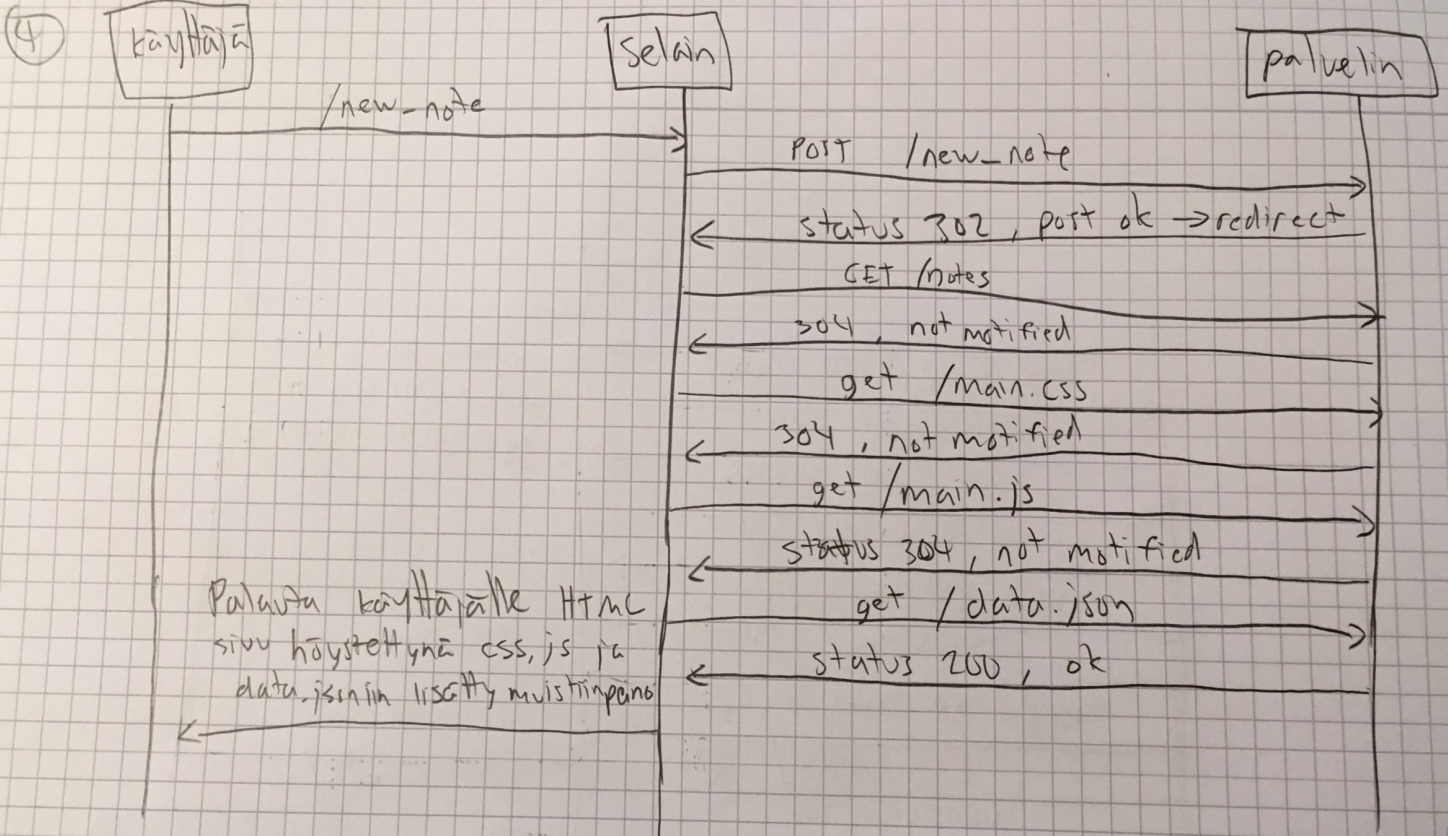 4
käyttäjä
selain
palvelin
/new_note
POST /new_note
status 302, post ok →redirect
GET /notes
304, not motified
get /main.css
304, not motified
get /main.js
status 304, not motified
get /data.json
status 200, ok
Palauta käyttäjälle HTML
sivu höystettynä css, js ja
data.jsoniin lisätty muistiinpano